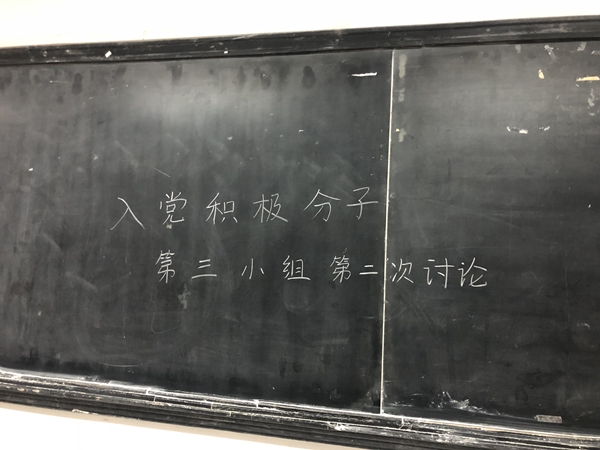 入党积极分子
第三小组第二次讨论